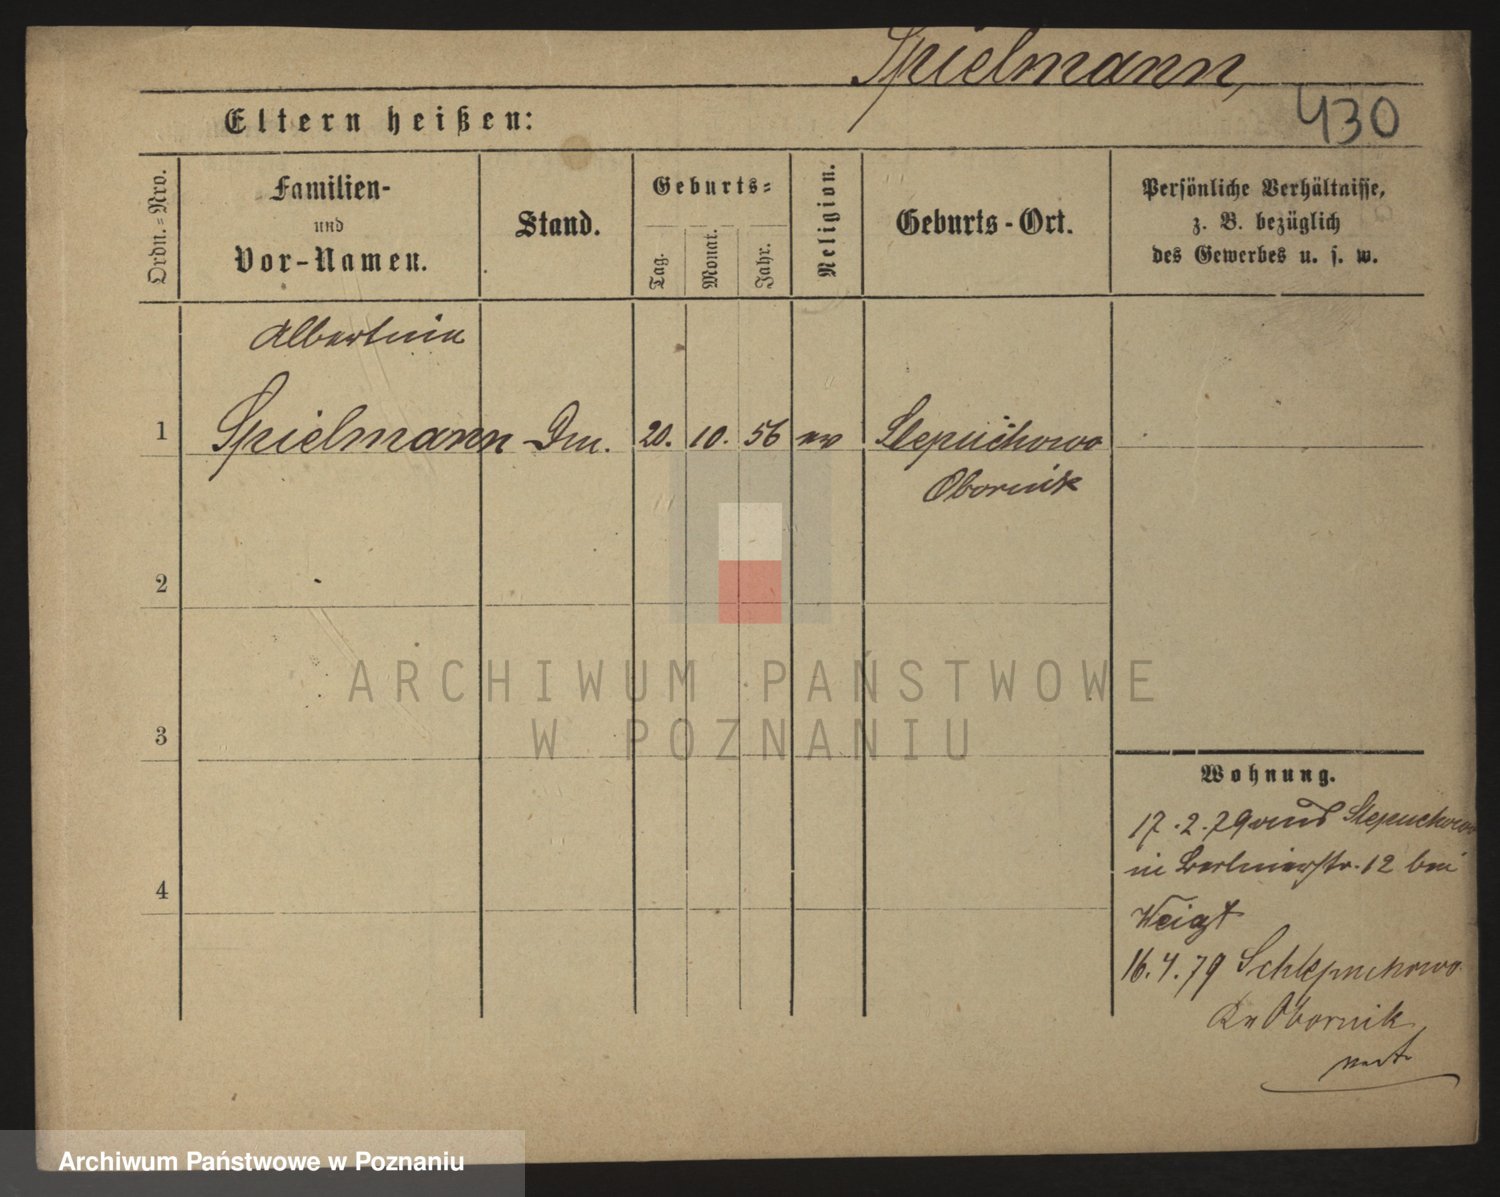 Spielmann,
430
Eltern heißen:
Ordn.-Nro.
Familien-
und
Vor-Namen.
Stand.
Geburts-
Tag.
Monat.
Jahr.
Religion.
Geburts-Ort.
Persönliche Verhältnisse,
z. B. bezüglich
des Gewerbes u. s. w.
Albertine
1 Spielmann Dm. 20. 10. 56 ev Slepuchowo
Obornik
2
3
4
ARCHIWUM PAŃSTWOWE
W POZNANIU
Wohnung.
17.2.79 aus Slepuchowo
in Berlinerstr. 12 bei
Weigt
16.4.79 Schlepuchowo
Kr Obornik
Archiwum Państwowe w Poznaniu